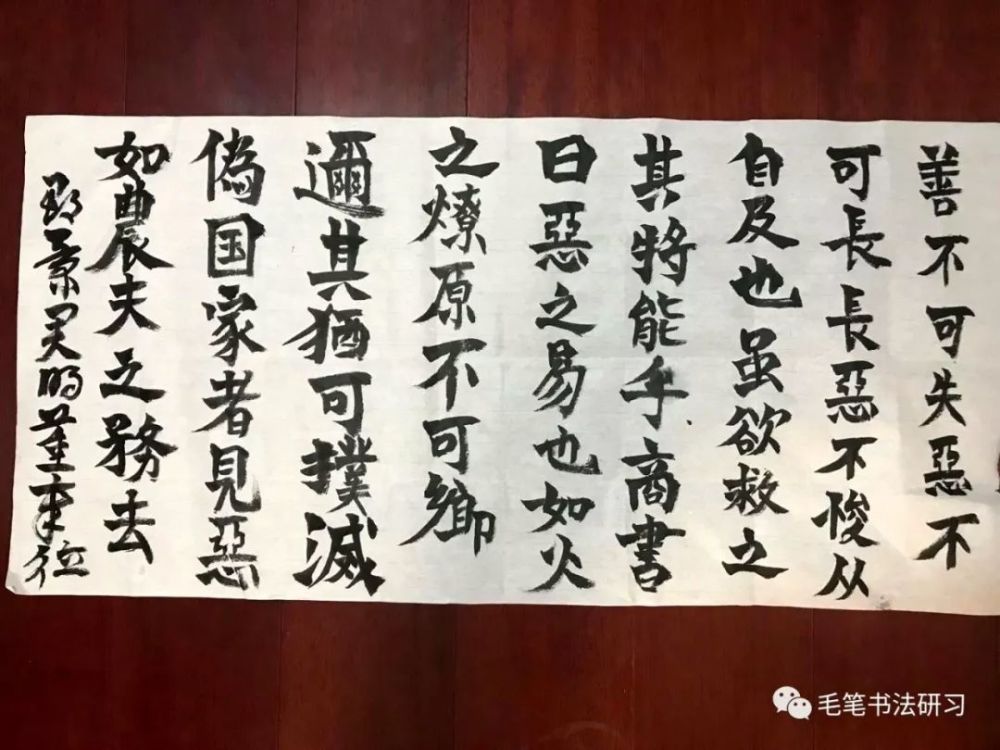 善不可失惡不
可長長惡不悛从
自及也虽欲救之
其将能乎商書
曰惡之易也如火
之燎原不可鄉
邇其猶可撲滅
偽国家者見惡
如農夫之務去
毛笔书法研习